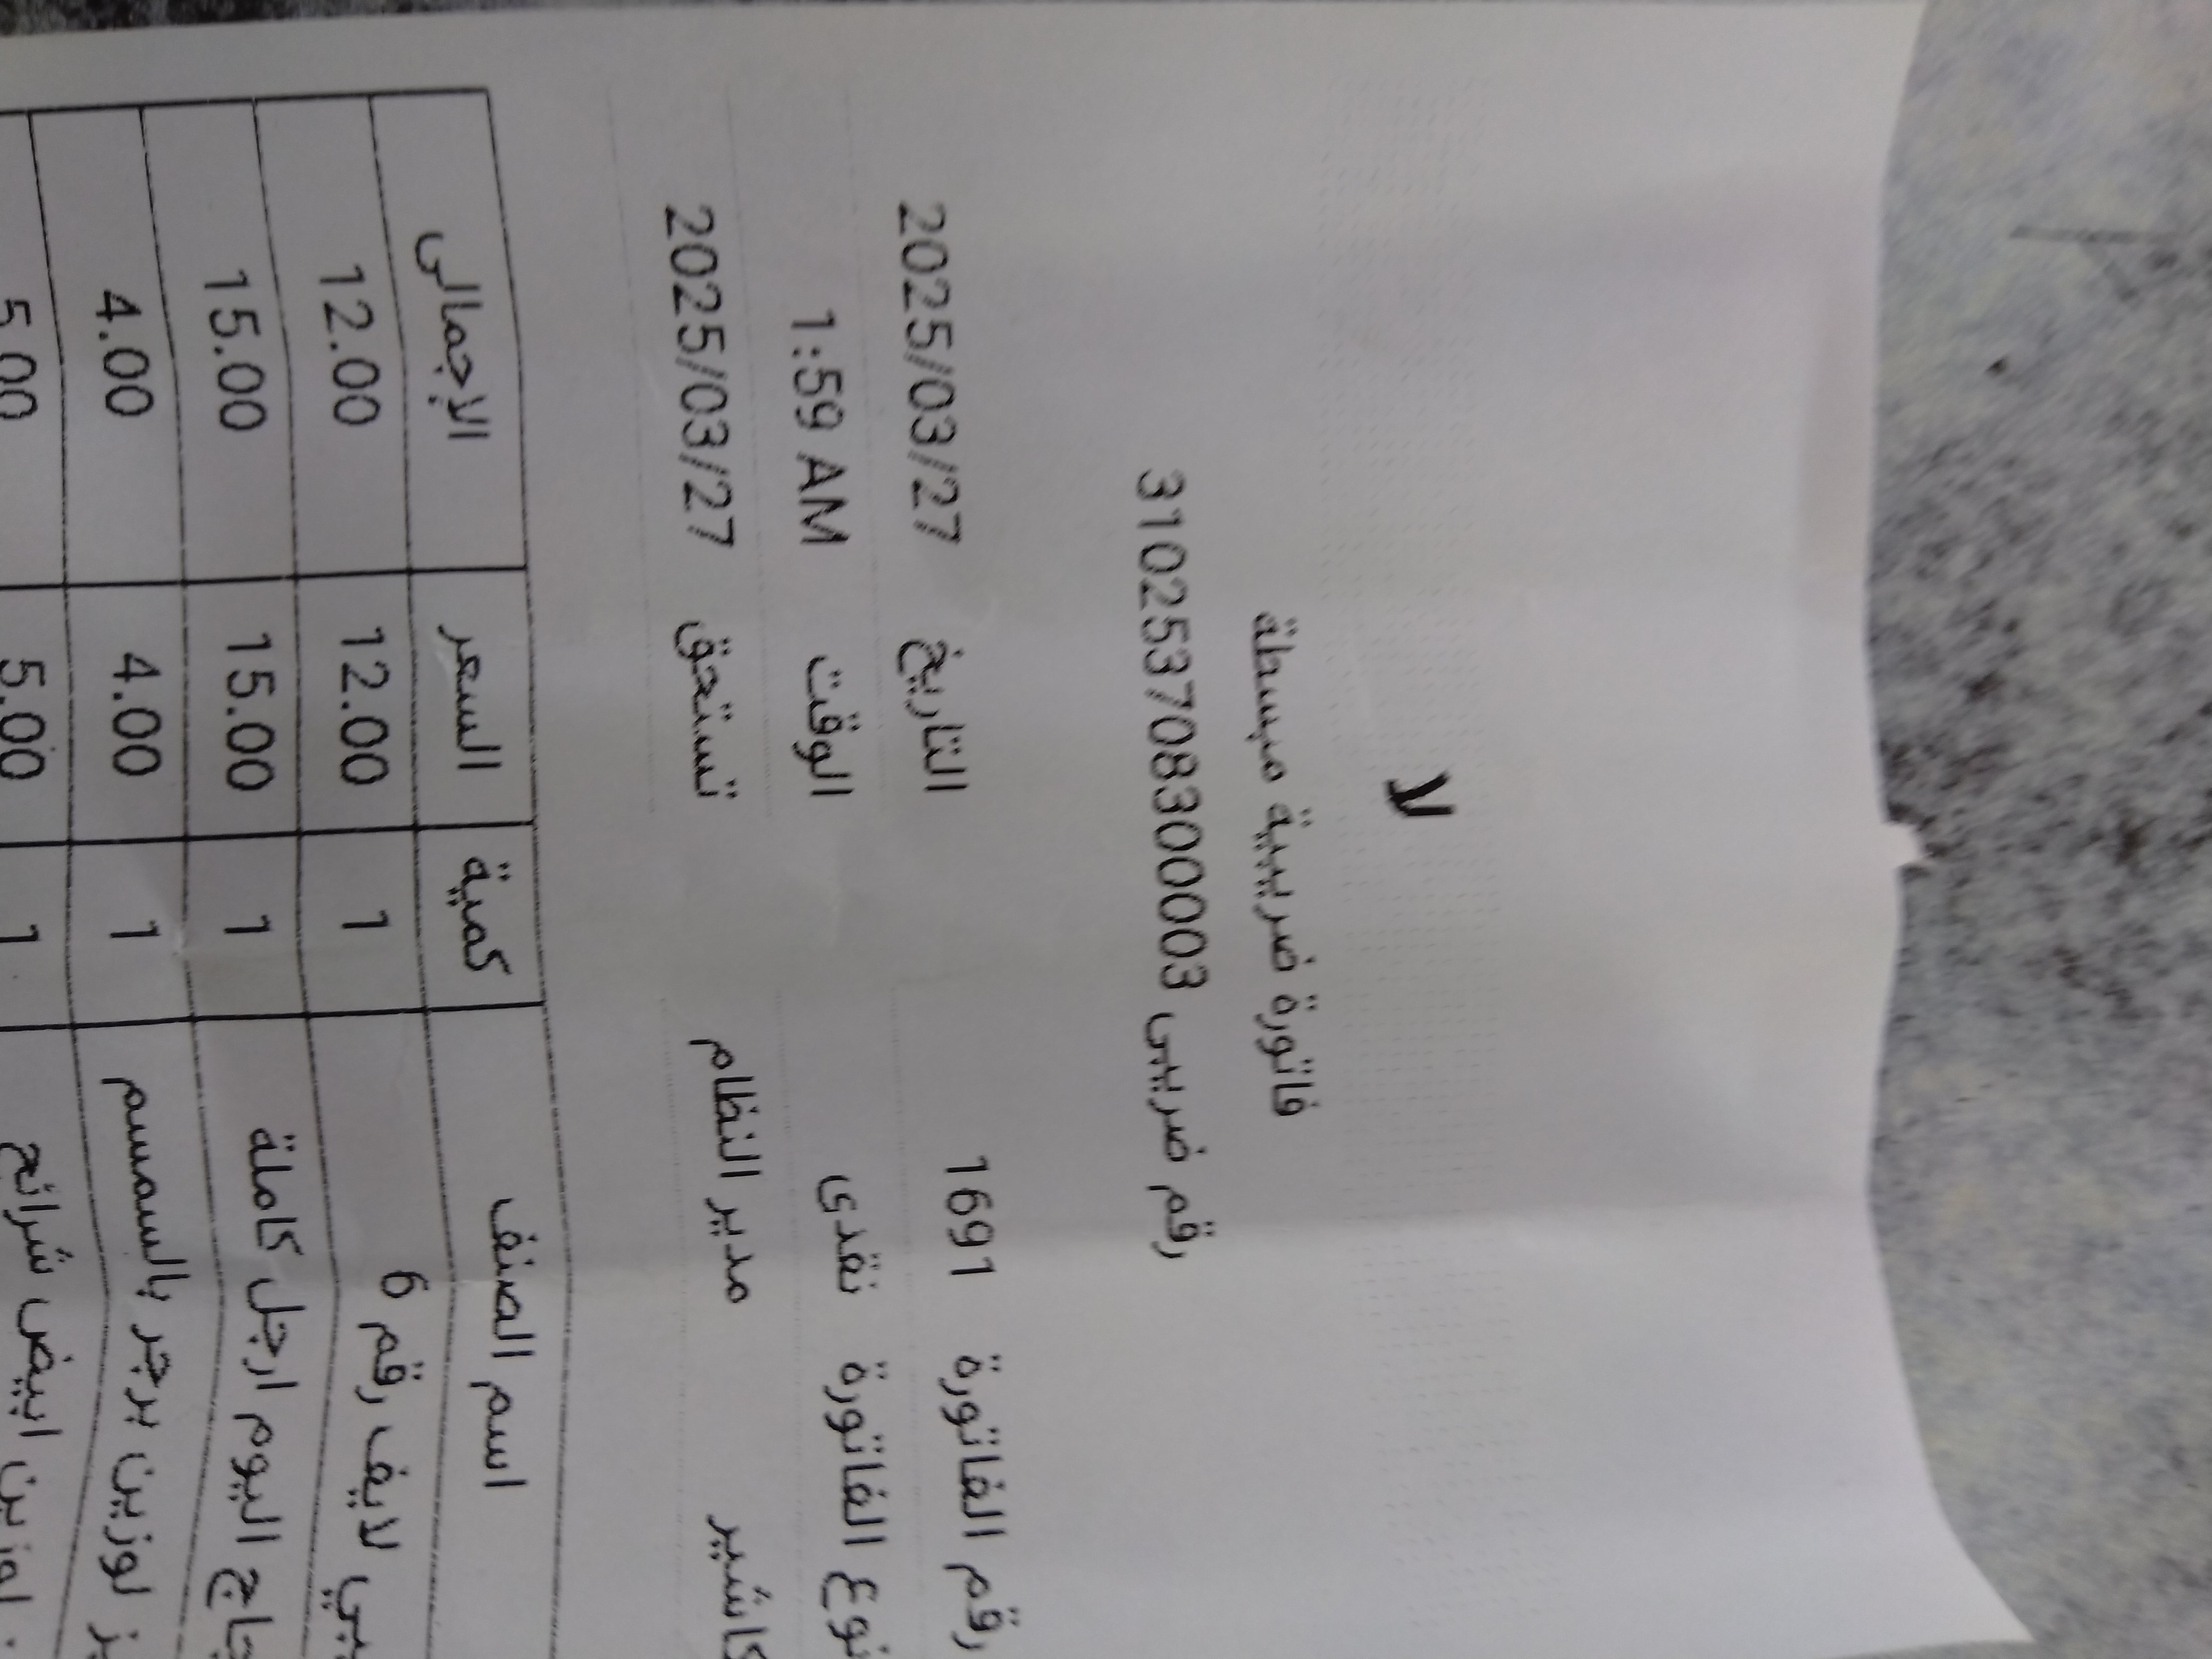 لا
فاتورة ضريبية مبسطة
رقم ضريبى 310253708300003
رقم الفاتورة 1691 التاريخ 2025/03/27
نوع الفاتورة نقدى الوقت 1:59 AM
كاشير مدير النظام تستحق 2025/03/27
اسم الصنف كمية السعر الإجمالى
لايف رقم 6 1 12.00 12.00
اليوم ارجل كاملة 1 15.00 15.00
لوزين برجر بالسمسم 1 4.00 4.00
لوزين ابيض شرائح 1 5.00 5.00